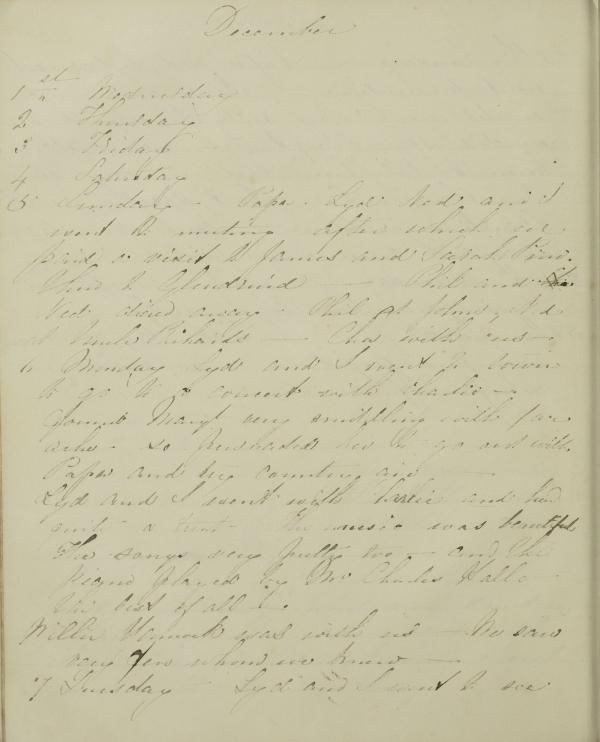 December
1st Wednesday
2 Thursday
3 Friday
4 Saturday
5 Sunday - Papa - Lyd Ned and I
went to meeting after which we
paid a visit to James and Sarah
to Glendruid — Phil and
Ned dined away - Phil at Johns - Ned
at Uncle Richards — with us -
6 Monday Lyd and I went to town
to go to a concert with Charlie -
found Mary very with face
ache - so persuaded her to go out with
Papa and try country air —
Lyd and I went with Charlie and had
a treat - The music was beautiful
The songs very pretty too - and the
piano played by Mr Charles Halle -
the best of all -
Willie was with us - We saw
very few whom we knew —
7 Tuesday - Lyd and I went to see